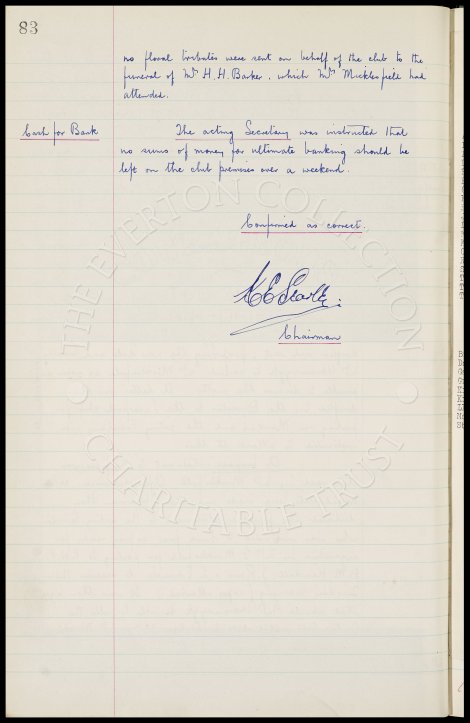 83
no floral tributes were sent on behalf of the club to the
funeral of Mr H. H. Barker, which Mr Micklesfield had
attended.
Cash for Bank
The acting Secretary was instructed that
no sums of money for ultimate banking should be
left on the club premises over a weekend.
Confirmed as correct.
Chairman
THE EVERTON COLLECTION
CHARITABLE TRUST